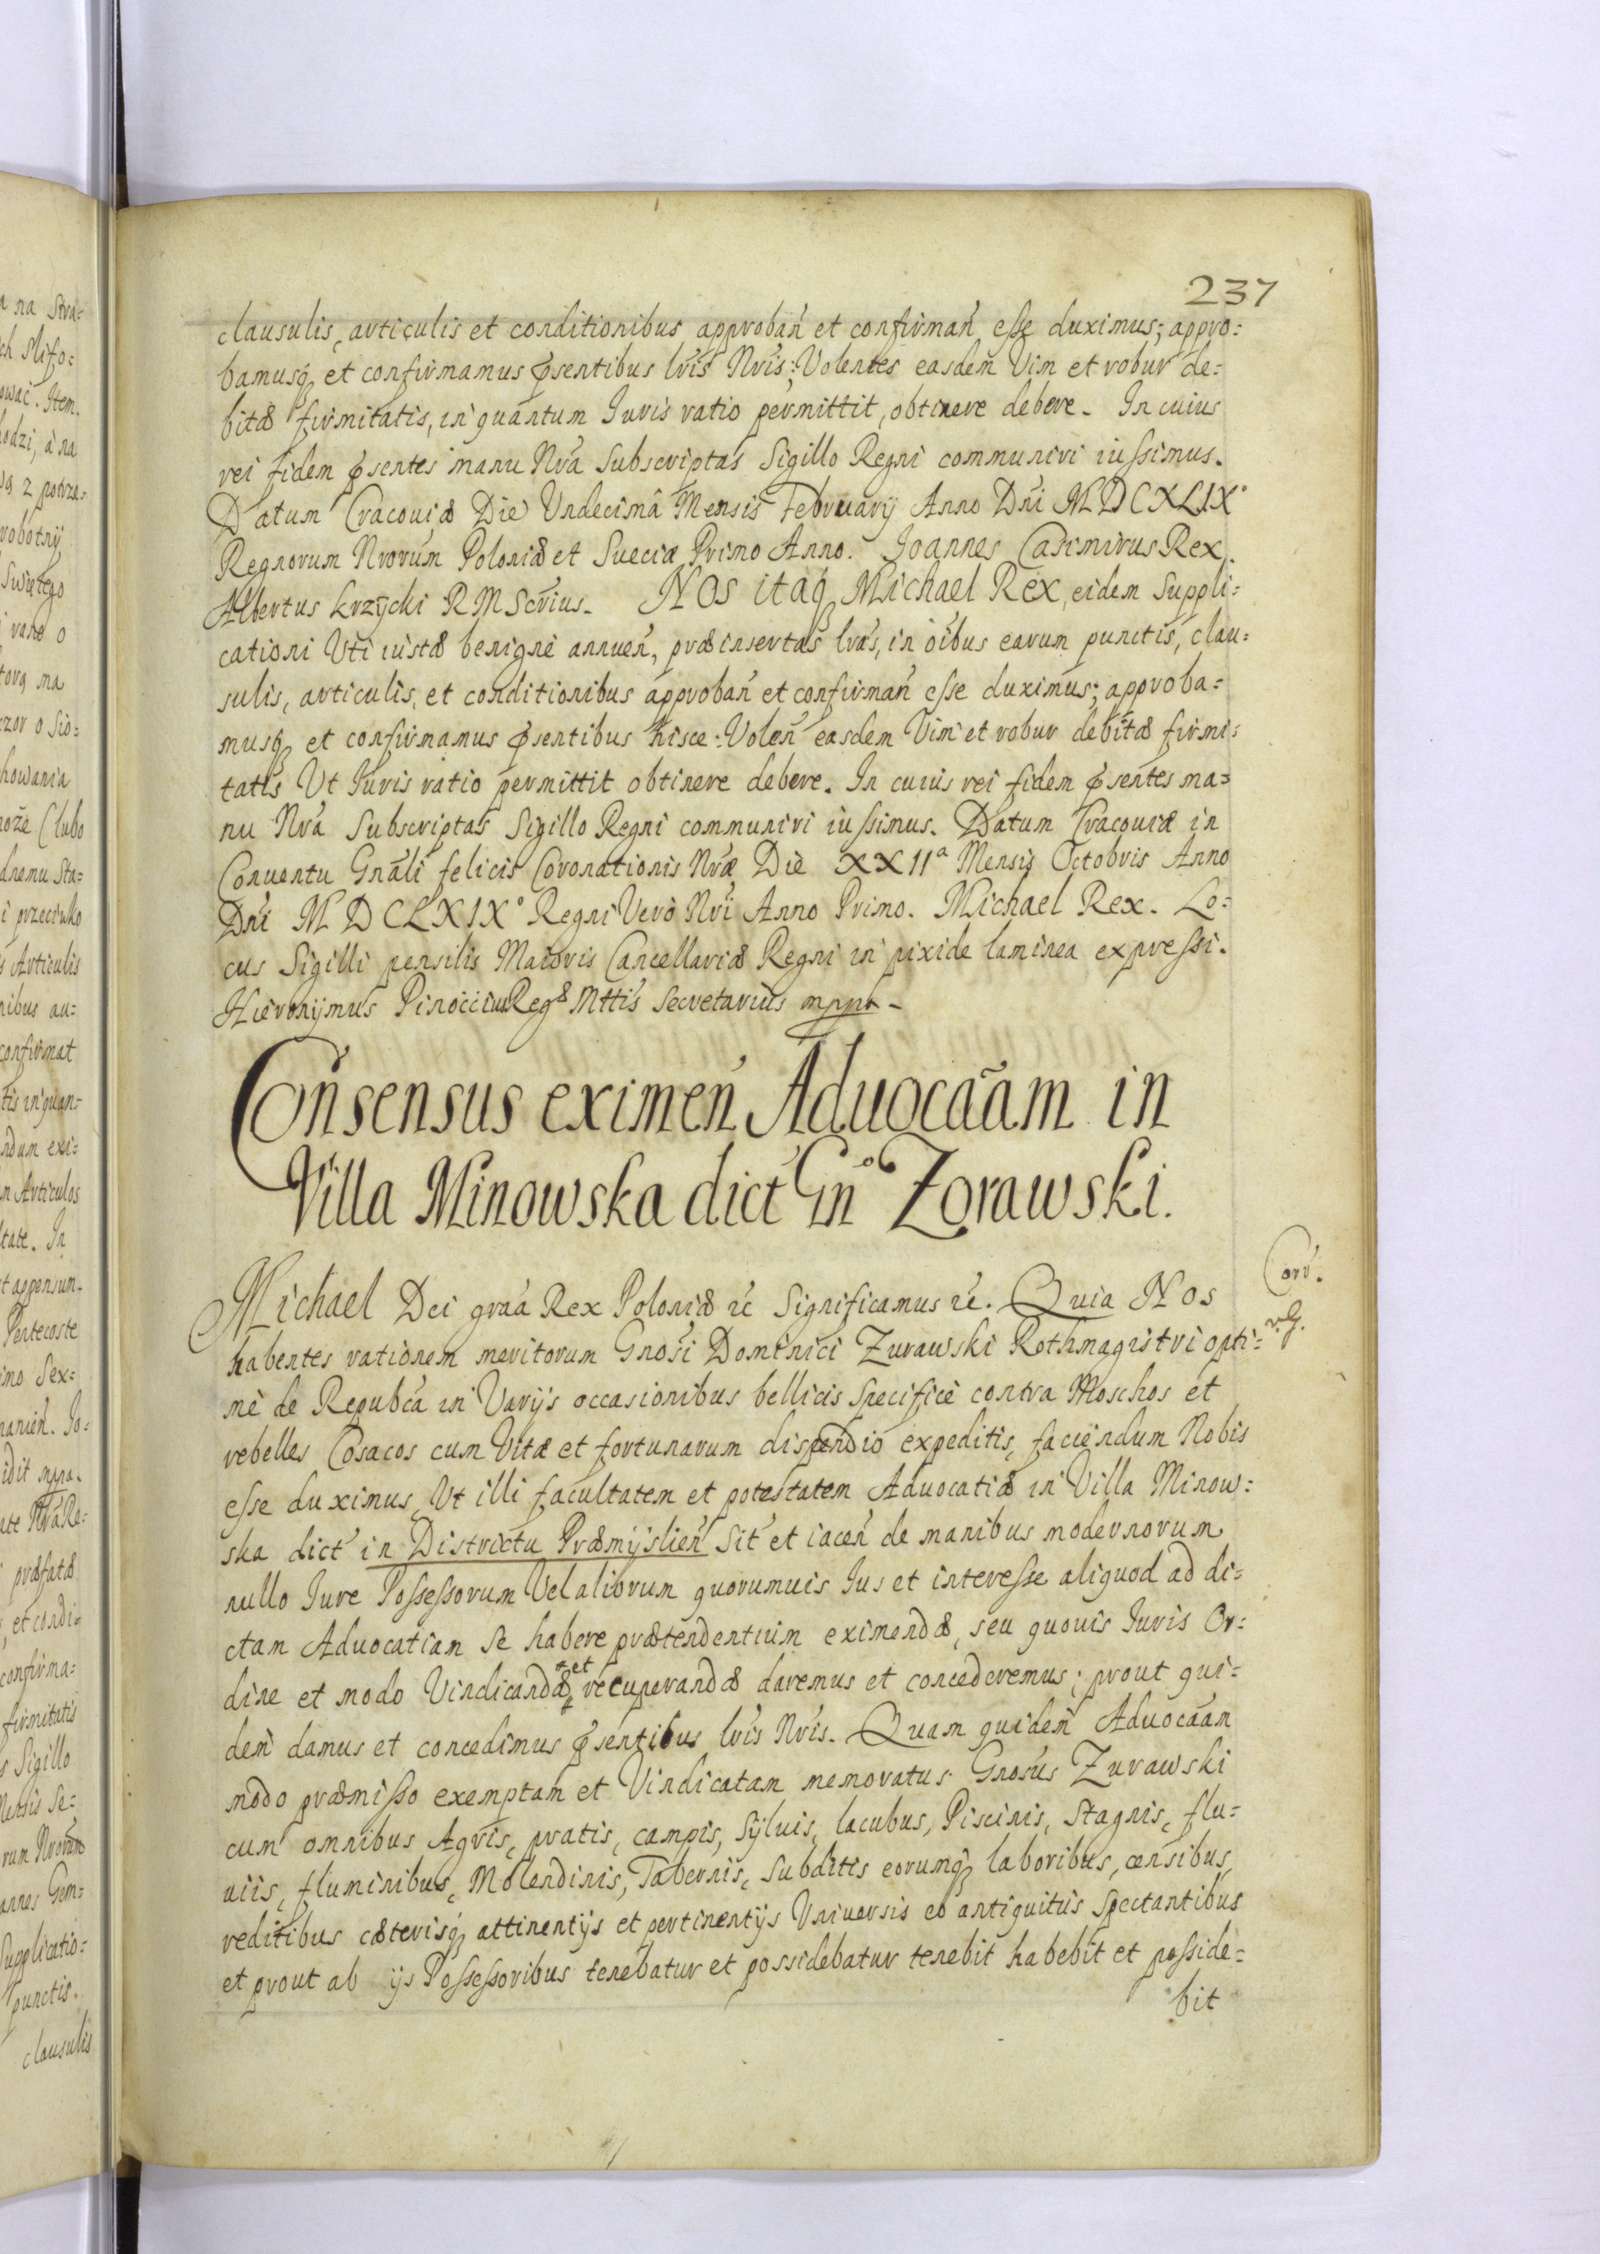 237
clausulis, articulis et conditionibus approbań et confirmań esse duximus; appro=
bamusq́ et confirmamus p̄sentibus lrīs Nrīs: Volentes easdem Vim et robur de=
bitæ firmitatis, in quantum Iuris ratio permittit, obtinere debere. In cuius
rei fidem p̄sentes manu Nrā Subscriptas Sigillo Regni communiri iussimus.
Datum Cracouiæ Die Vndecimâ Mensis February Anno Dni MDCXLIX°
Regnorum Nrorum Poloniæ et Sueciæ Primo Anno. Joannes Casimirus Rex.
Albertus Krzÿcki RMScrius. Nos itaq́ Michael Rex, eidem Suppli=
cationi Uti iustæ benignè annueń, præinsertas lrās, in oībus earum punctis, clau=
sulis, articulis, et conditionibus approbań et confirmań esse duximus; approba=
musq́ et confirmamus p̄sentibus hisce: Voleń easdem Vim et robur debitæ firmi=
tatis Ut Iuris ratio permittit obtinere debere. In cuius rei fidem p̄sentes ma=
nu Nrā Subscriptas Sigillo Regni communiri iussimus. Datum Cracouiæ in
Conuentu Gnāli felicis Coronationis Nræ Die XXIIa Mensis Octobris Anno
Dni MDCLXIX° Regni Verò Nri Anno Primo. Michael Rex. Lo=
cus Sigilli pensilis Maioris Cancellariæ Regni in pixide laminea expressi.
Hieronijmus Pinoccius Regæ Mttis Secretarius mppa
Consensus eximeń Aduocāam in
Villa Minowska dict́ Gn° Zorawski.
Michael Dei graā Rex Poloniæ rc̄ Significamus rc̄. Quia Nos
habentes rationem meritorum Gnosi Dominici Zurawski Rothmagistri opti=
mè de Republicā in Varijs occasionibus bellicis Specificè contra Moschos et
rebelles Cosacos cum Vitæ et fortunarum dispendio expeditis, faciendum Nobis
esse duximus, Vt illi facultatem et potestatem Aduocatiæ in Villa Minow=
ska dict́ in Districtu Præmÿslień Sit́ et iaceń de manibus modernorum
nullo Iure Possessorum Vel aliorum quorumuis Ius et interesse aliquod ad di=
ctam Aduocatiam Se habere prætendentium eximendæ, seu quouis Iuris Or=
dine et modo Vindicandæ et recuperandæ daremus et concederemus; prout qui=
dem damus et concedimus p̄sentibus lrīs Nrīs. Quam quidem Aduocāam
modo præmisso exemptam et Vindicatam memoratus Gnosus Zurawski
cum omnibus Agris, pratis, campis, Syluis, lacubus, Piscinis, Stagnis, flu=
uiis, fluminibus, Molendinis, Tabernis, Subditis eorumq́ laboribus, censibus,
reditibus cæterisq́ attinentijs et pertinentijs Vniuersis eò antiquitùs Spectantibus
et prout ab ijs Possessoribus tenebatur et possidebatur tenebit habebit et posside=
bit